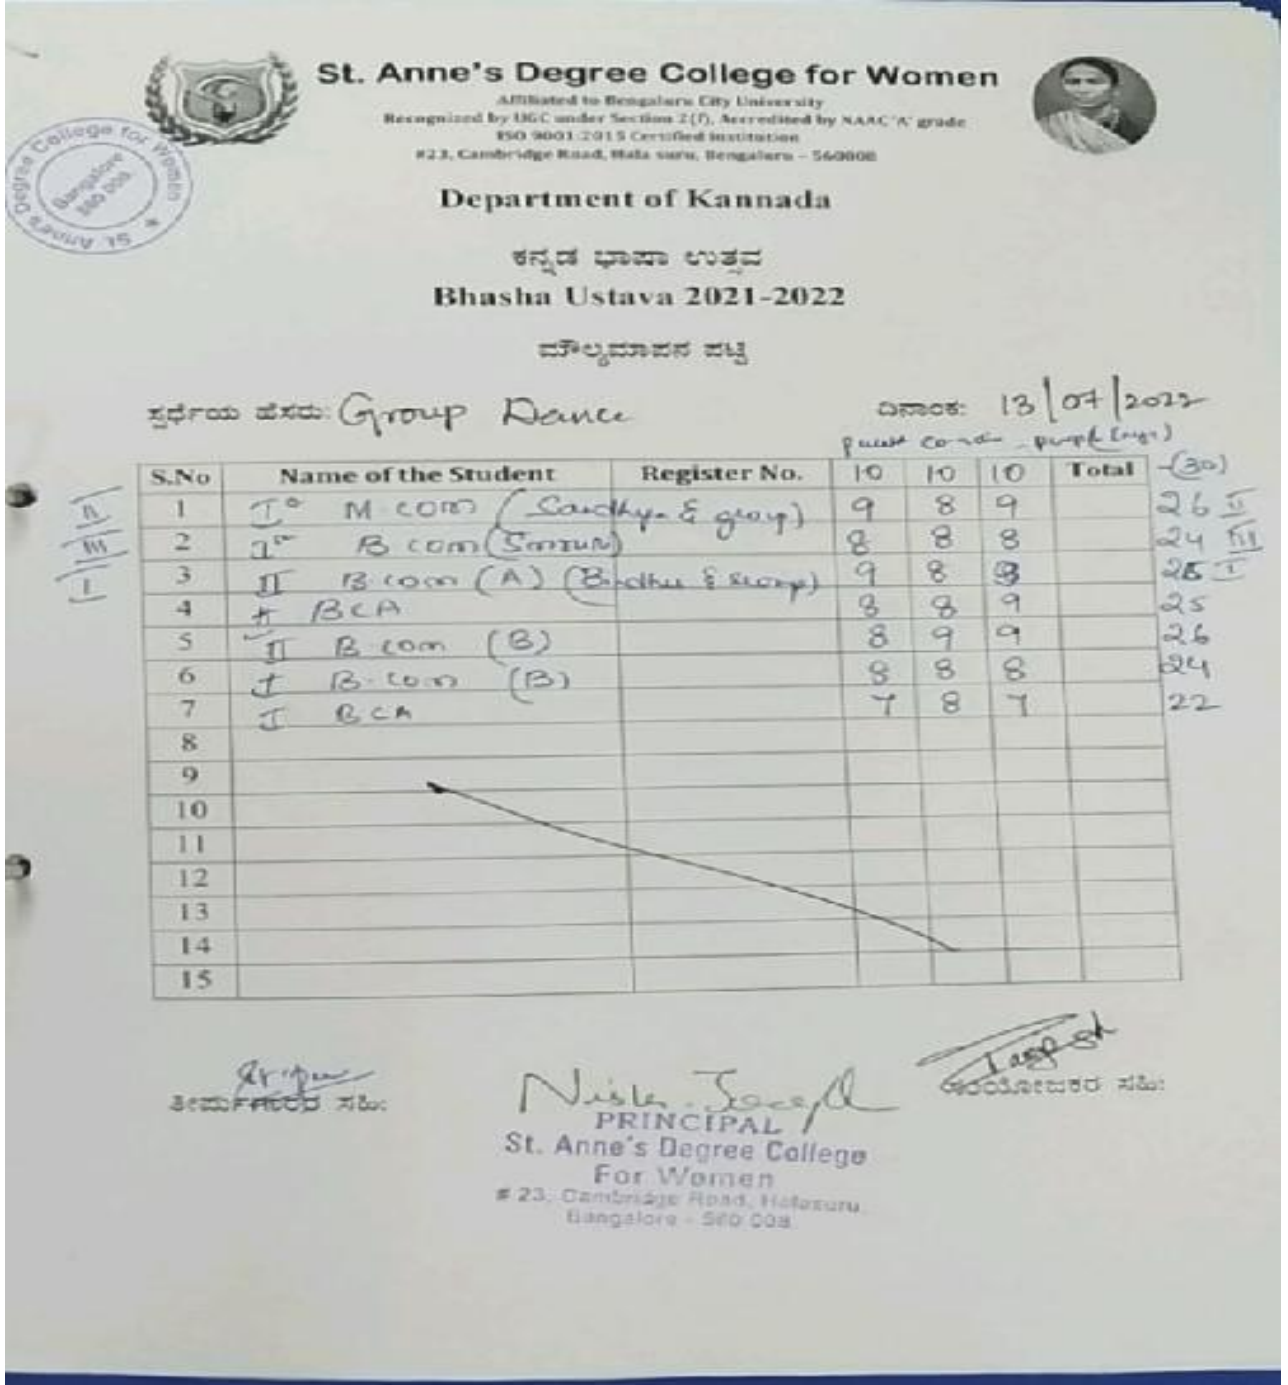 St. Anne's Degree College for Women
Affiliated to Bengaluru City University
Recognized by UGC under Section 2(f), Accredited by NAAC 'A' grade
ISO 9001:2015 Certified Institution
#23, Cambridge Road, Hala suru, Bengaluru - 560008
St. Anne's Degree College for Women
Bangalore
560 008
Department of Kannada
ಕನ್ನಡ ಭಾಷಾ ಉತ್ಸವ
Bhasha Ustava 2021-2022
ಮೌಲ್ಯಮಾಪನ ಪಟ್ಟಿ
ಸ್ಪರ್ಧೆಯ ಹೆಸರು: Group Dance ದಿನಾಂಕ: 13/07/2022
S.No Name of the Student Register No. 10 10 10 Total (30)
II 1 I M.com (Sandhya & group) 9 8 9 26 II
III 2 B com (Simran) 8 8 8 24 III
I 3 II B.com (A) (Bindhu & group) 9 8 I
4 BCA 8 8 9 25
5 II B.com (B) 8 9 9 26
6 I B.com (B) 8 8 8 24
7 I BCA 7 8 7 22
8
9
10
11
12
13
14
15
ತೀರ್ಪುಗಾರರ ಸಹಿ:
Nisha Joseph
ಆಯೋಜಕರ ಸಹಿ:
PRINCIPAL
St. Anne's Degree College
For Women
# 23, Cambridge Road, Halasuru,
Bangalore - 560 008